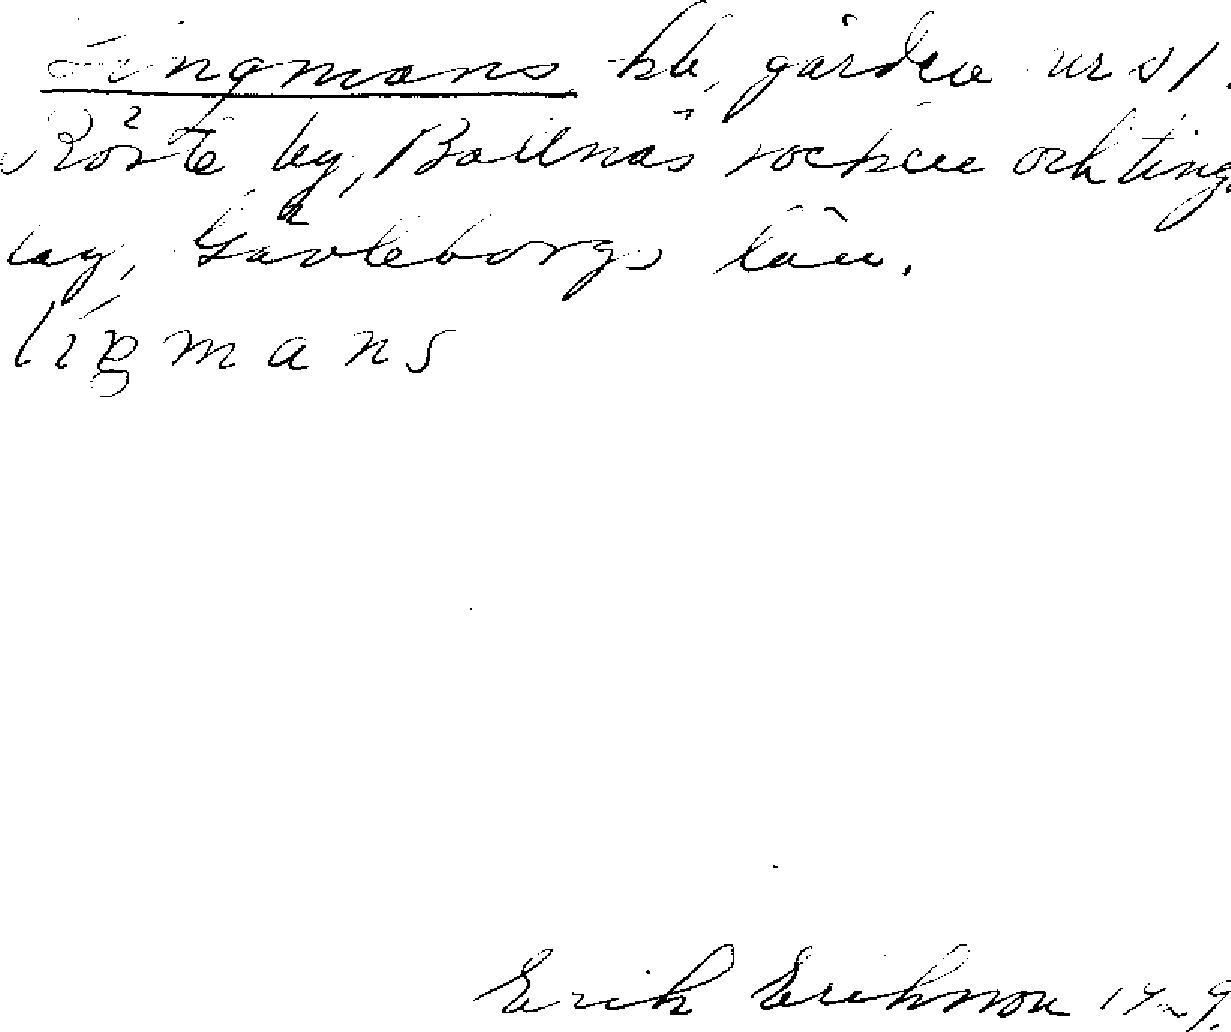 Lingmans gården nr
Röste by, Bollnäs socken och tings
lag, Gävleborgs län.
liŋmans
Erik Eriksson